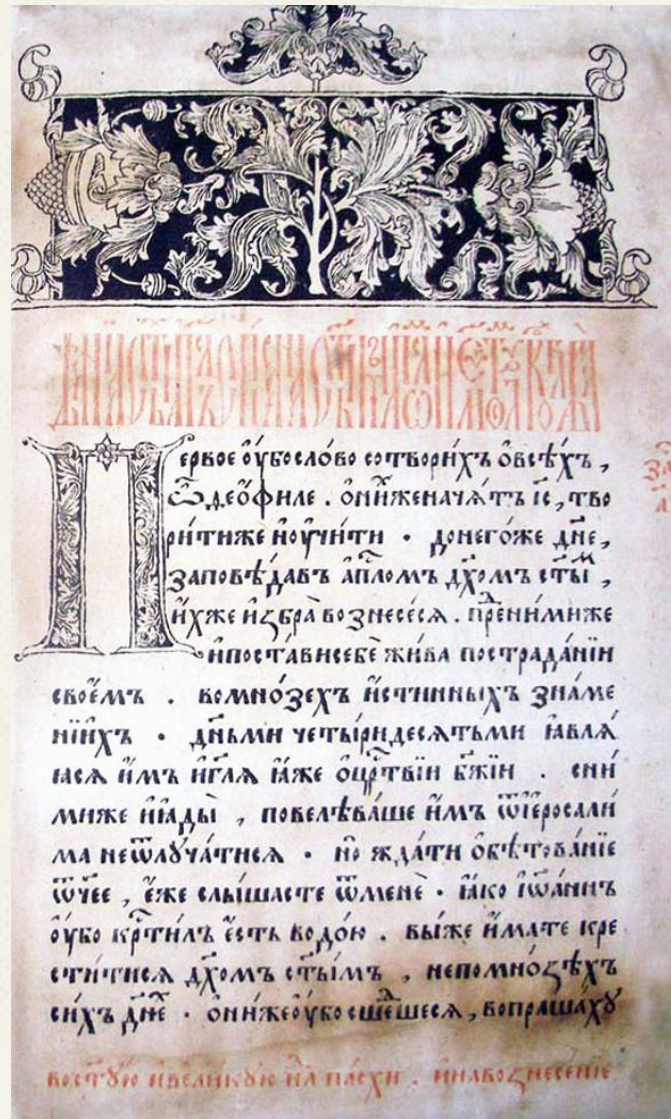 Первое ᲂу҆́бо сло́во сотвори́хъ ѡ҆всѣ́хъ,
Ѽ деѻ҆́филе . ѻ҆ни́хже нача́тъ і҆с, тво
ри́тиже ѝ ᲂу҆чи́ти · донего́же дн҃е,
заповѣ́давъ а҆пⷭ҇ломъ дх҃омъ ст҃ыⷨ ,
и҆́хже и҆ꙁбра̀ вознесе́сѧ . преⷣними́же
и҆поста́ви себѐ жи́ва пострада́нїи
свое́мъ . вомно́зехъ и҆́стинныхъ зна́ме
нїи҆хъ · дн҃ьми четы́ридесѧтьми ꙗ҆влѧ́
ꙗсѧ и҆̀мъ и҆гл҃ѧ ꙗ҆́же ѻ҆црⷭ҇твїи бж҃їи . сни́
миже и҆ꙗды̀ , повелѣва́ше и҆̀мъ ѿі҆еросали́
ма неѿлꙋча́тисѧ · но жда́ти ѻ҆бѣтова́нїе
ѿч҃ее , є҆́же слы́шасте ѿменѐ · ꙗ҆́ко і҆ѡ҆а́ннъ
ᲂу҆́бо крⷭ҇ти́лъ є҆́сть водо́ю . вы́же и҆́мате кре
сти́тисѧ дх҃омъ ст҃ы́мъ , непомно́ꙁѣхъ
си́хъ дн҃е · ѻ҆ни́же ᲂу҆́бо сшеⷣшесѧ, вопраша́хꙋ
востꙋ́ю и҆вели́кꙋю нⷧ҇ѧ па́схи . и҆навоꙁнесе́нїе